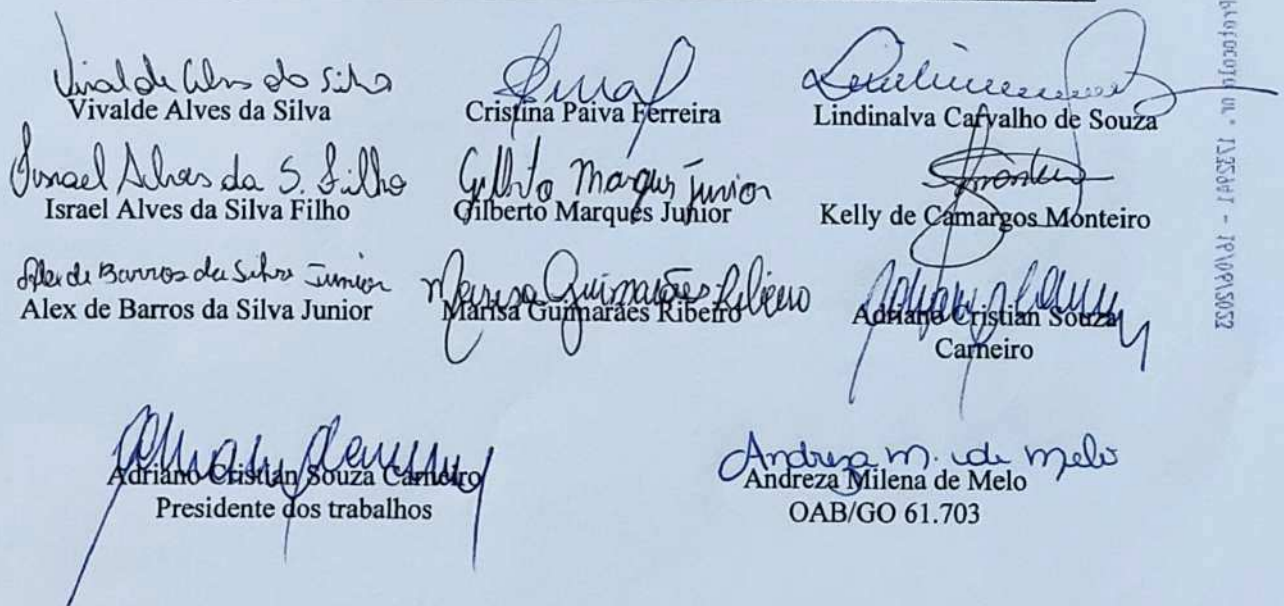 Vivalde Alves da Silva
Vivalde Alves da Silva
Cristina Paiva Ferreira
Lindinalva Carvalho de Souza
Israel Alves da S. Filho
Israel Alves da Silva Filho
Gilberto Marques Junior
Gilberto Marques Junior
Kelly de Camargos Monteiro
Alex de Barros da Silva Junior
Alex de Barros da Silva Junior
Marisa Guimarães Ribeiro
Marisa Guimarães Ribeiro
Adriano Cristian Souza
Carneiro
Adriano Cristian Souza Carneiro
Presidente dos trabalhos
Andreza M. de Melo
Andreza Milena de Melo
OAB/GO 61.703